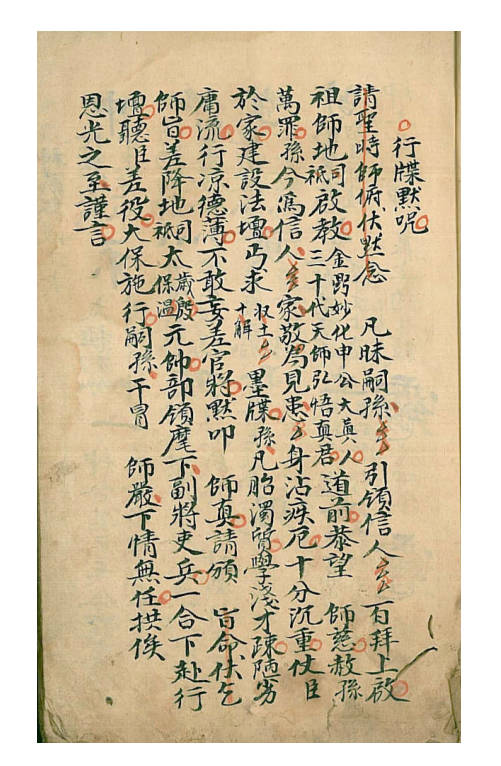 行牒默呪
請聖時師俯伏默念 凡昧嗣孫ム引領信人ム百拜上啟
祖師地司祇啟教金闕妙化申公大真人三十代天師弘悟真君道前恭望 師慈赦孫
萬罪孫今為信人ム家敬為見患ム身沾疾危十分沉重伏臣
於家建設法壇丐求収土十解ム墨牒孫凡胎濁質學淺才疎陋劣
庸流行凉德薄不敢妄差官將默叩 師真請頒 旨命伏乞
師旨差降地司祇太歲殷保溫元帥部領麾下副將吏兵一合下赴行
壇聽臣差役大保施行嗣孫干冒 師嚴下情無任拱俟
恩光之至謹言